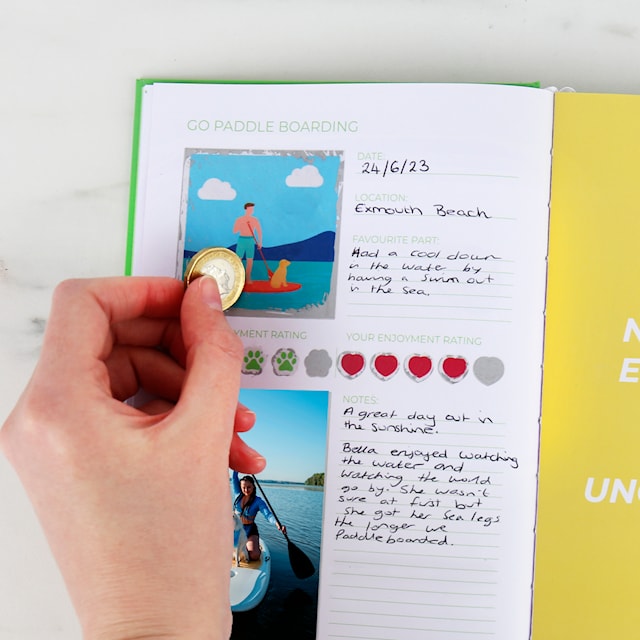 GO PADDLE BOARDING
DATE:
24/6/23
LOCATION:
Exmouth Beach
FAVOURITE PART:
Had a cool down
in the water by
having a swim out
in the sea.
YMENT RATING
YOUR ENJOYMENT RATING
NOTES:
A great day out in
the sunshine.
Bella enjoyed watching
the water and
watching the world
go by. She wasn't
sure at first but
she got her sea legs
the longer we
paddleboarded.
N
E
UN